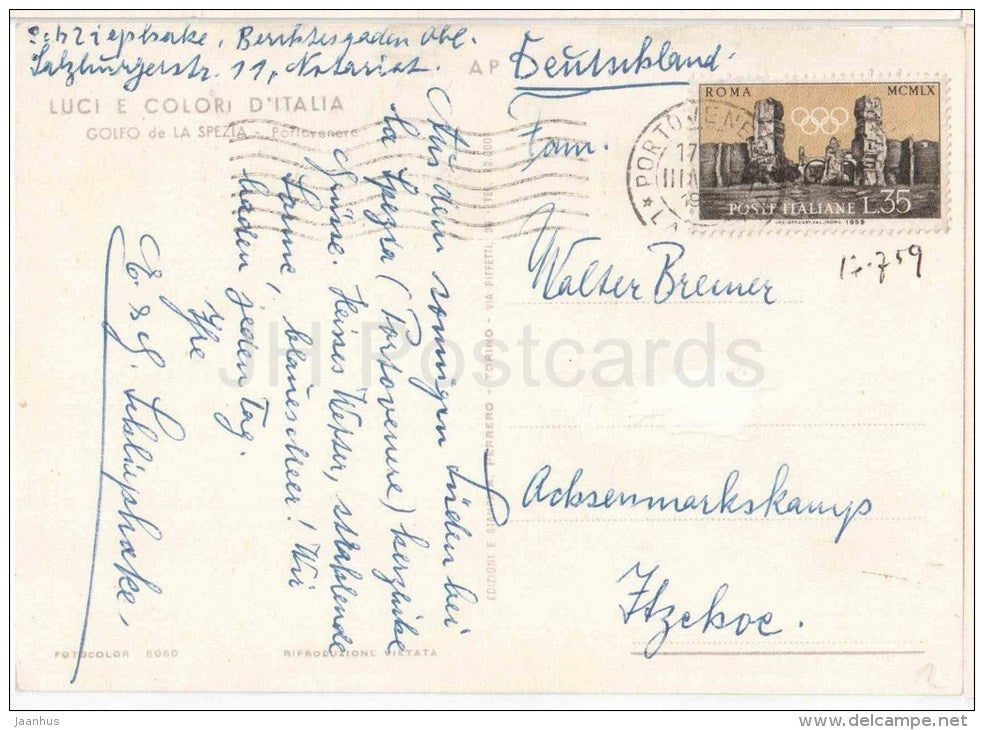 Schliephake, Berchtesgaden Obb.
Salzburgerstr. 11, Notariat.
LUCI E COLORI D'ITALIA
GOLFO de LA SPEZIA - Portovenere
Aus dem sonnigen Süden bei
la Spezia (Portovenere) herzliche
Grüsse. Heisses Wetter, strahlende
Sonne, blaues Meer! Wir
baden jeden Tag.
Ihre
E. & G. Schliephake,
EDIZIONI E STAMPA A. PERRERO - TORINO - VIA PIFFETTI,
Deutschland
Fam.
Walter Bremer
Achsenmarkskamp
Itzehoe.
ROMA MCMLX
POSTE ITALIANE L.35
1959
PORTOVENE
17
17.7 59
FOTOCOLOR 6060
RIPRODUZIONE VIETATA
JH Postcards
Jaanhus
www.delcampe.net